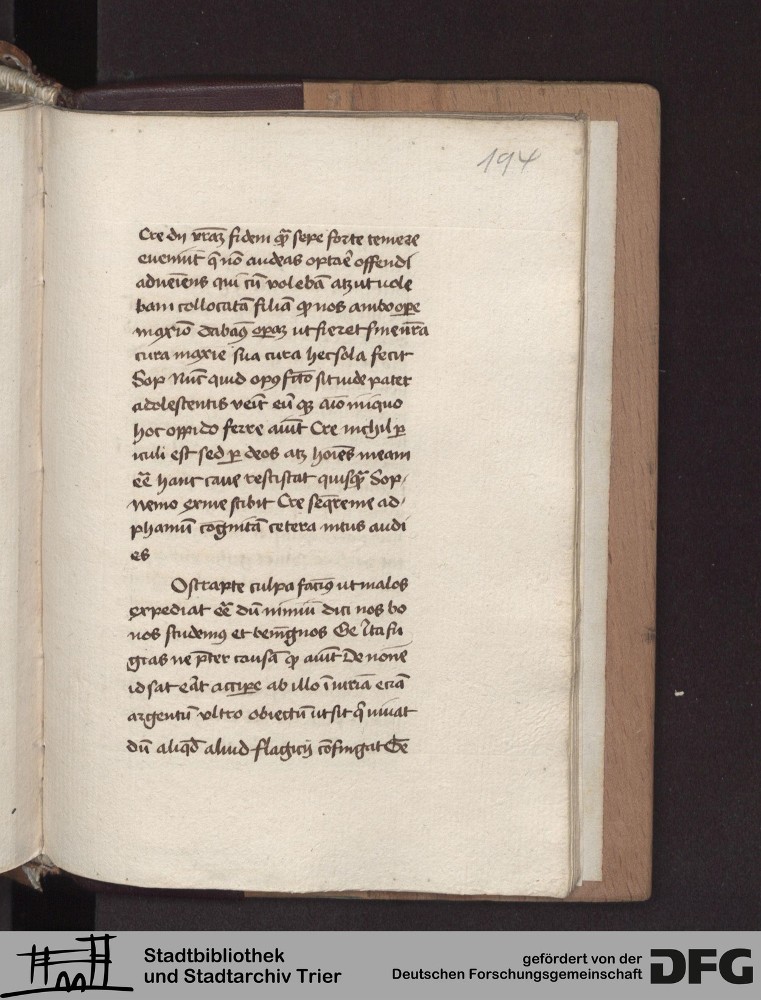 194
Cre dii vrãȝ fidem q̃ꝫ sepe forte temere
eueniũt q̃ nõ audeas optaẽ offendi
adueiẽns qui cũ volebã atꝫ ut uole
bam collocatã filiã qꝫ nos ambo oꝑe
maxiõ dabaꝰ oꝑaꝫ ut fieret sine nr̃a
cura maxie sua cura hec sola fecit
Sop Nũc quid opꝰ fc̃to sit uide pater
adolescentis veĩt eũ qꝫ aĩo iniquo
hoc oppido ferre aiũt Cre nichil ꝑ
iculi est sed ꝑ deos atꝫ hoĩes meam
eẽ hanc caue resciscat quisq̃ꝫ Sop
nemo ex me scibit Cre seq̃re me ad
phamiũ cognitã cetera intus audi
es
Ostra pte culpa facimꝰ ut malos
expediat eẽ dũ nimiũ dici nos bo
nos studemꝰ et benignos De Ita fu
gias ne p̃ter causã qꝫ aiũt De nonẽ
id sat erãt accipe ab illo ĩiuriã eciã
argentũ vltro obiectũ ut sit q̃ uiuat
dũ aliqd̃ aliud flagicij cõfingat Ge
Stadtbibliothek
und Stadtarchiv Trier
gefördert von der
Deutschen Forschungsgemeinschaft
DFG